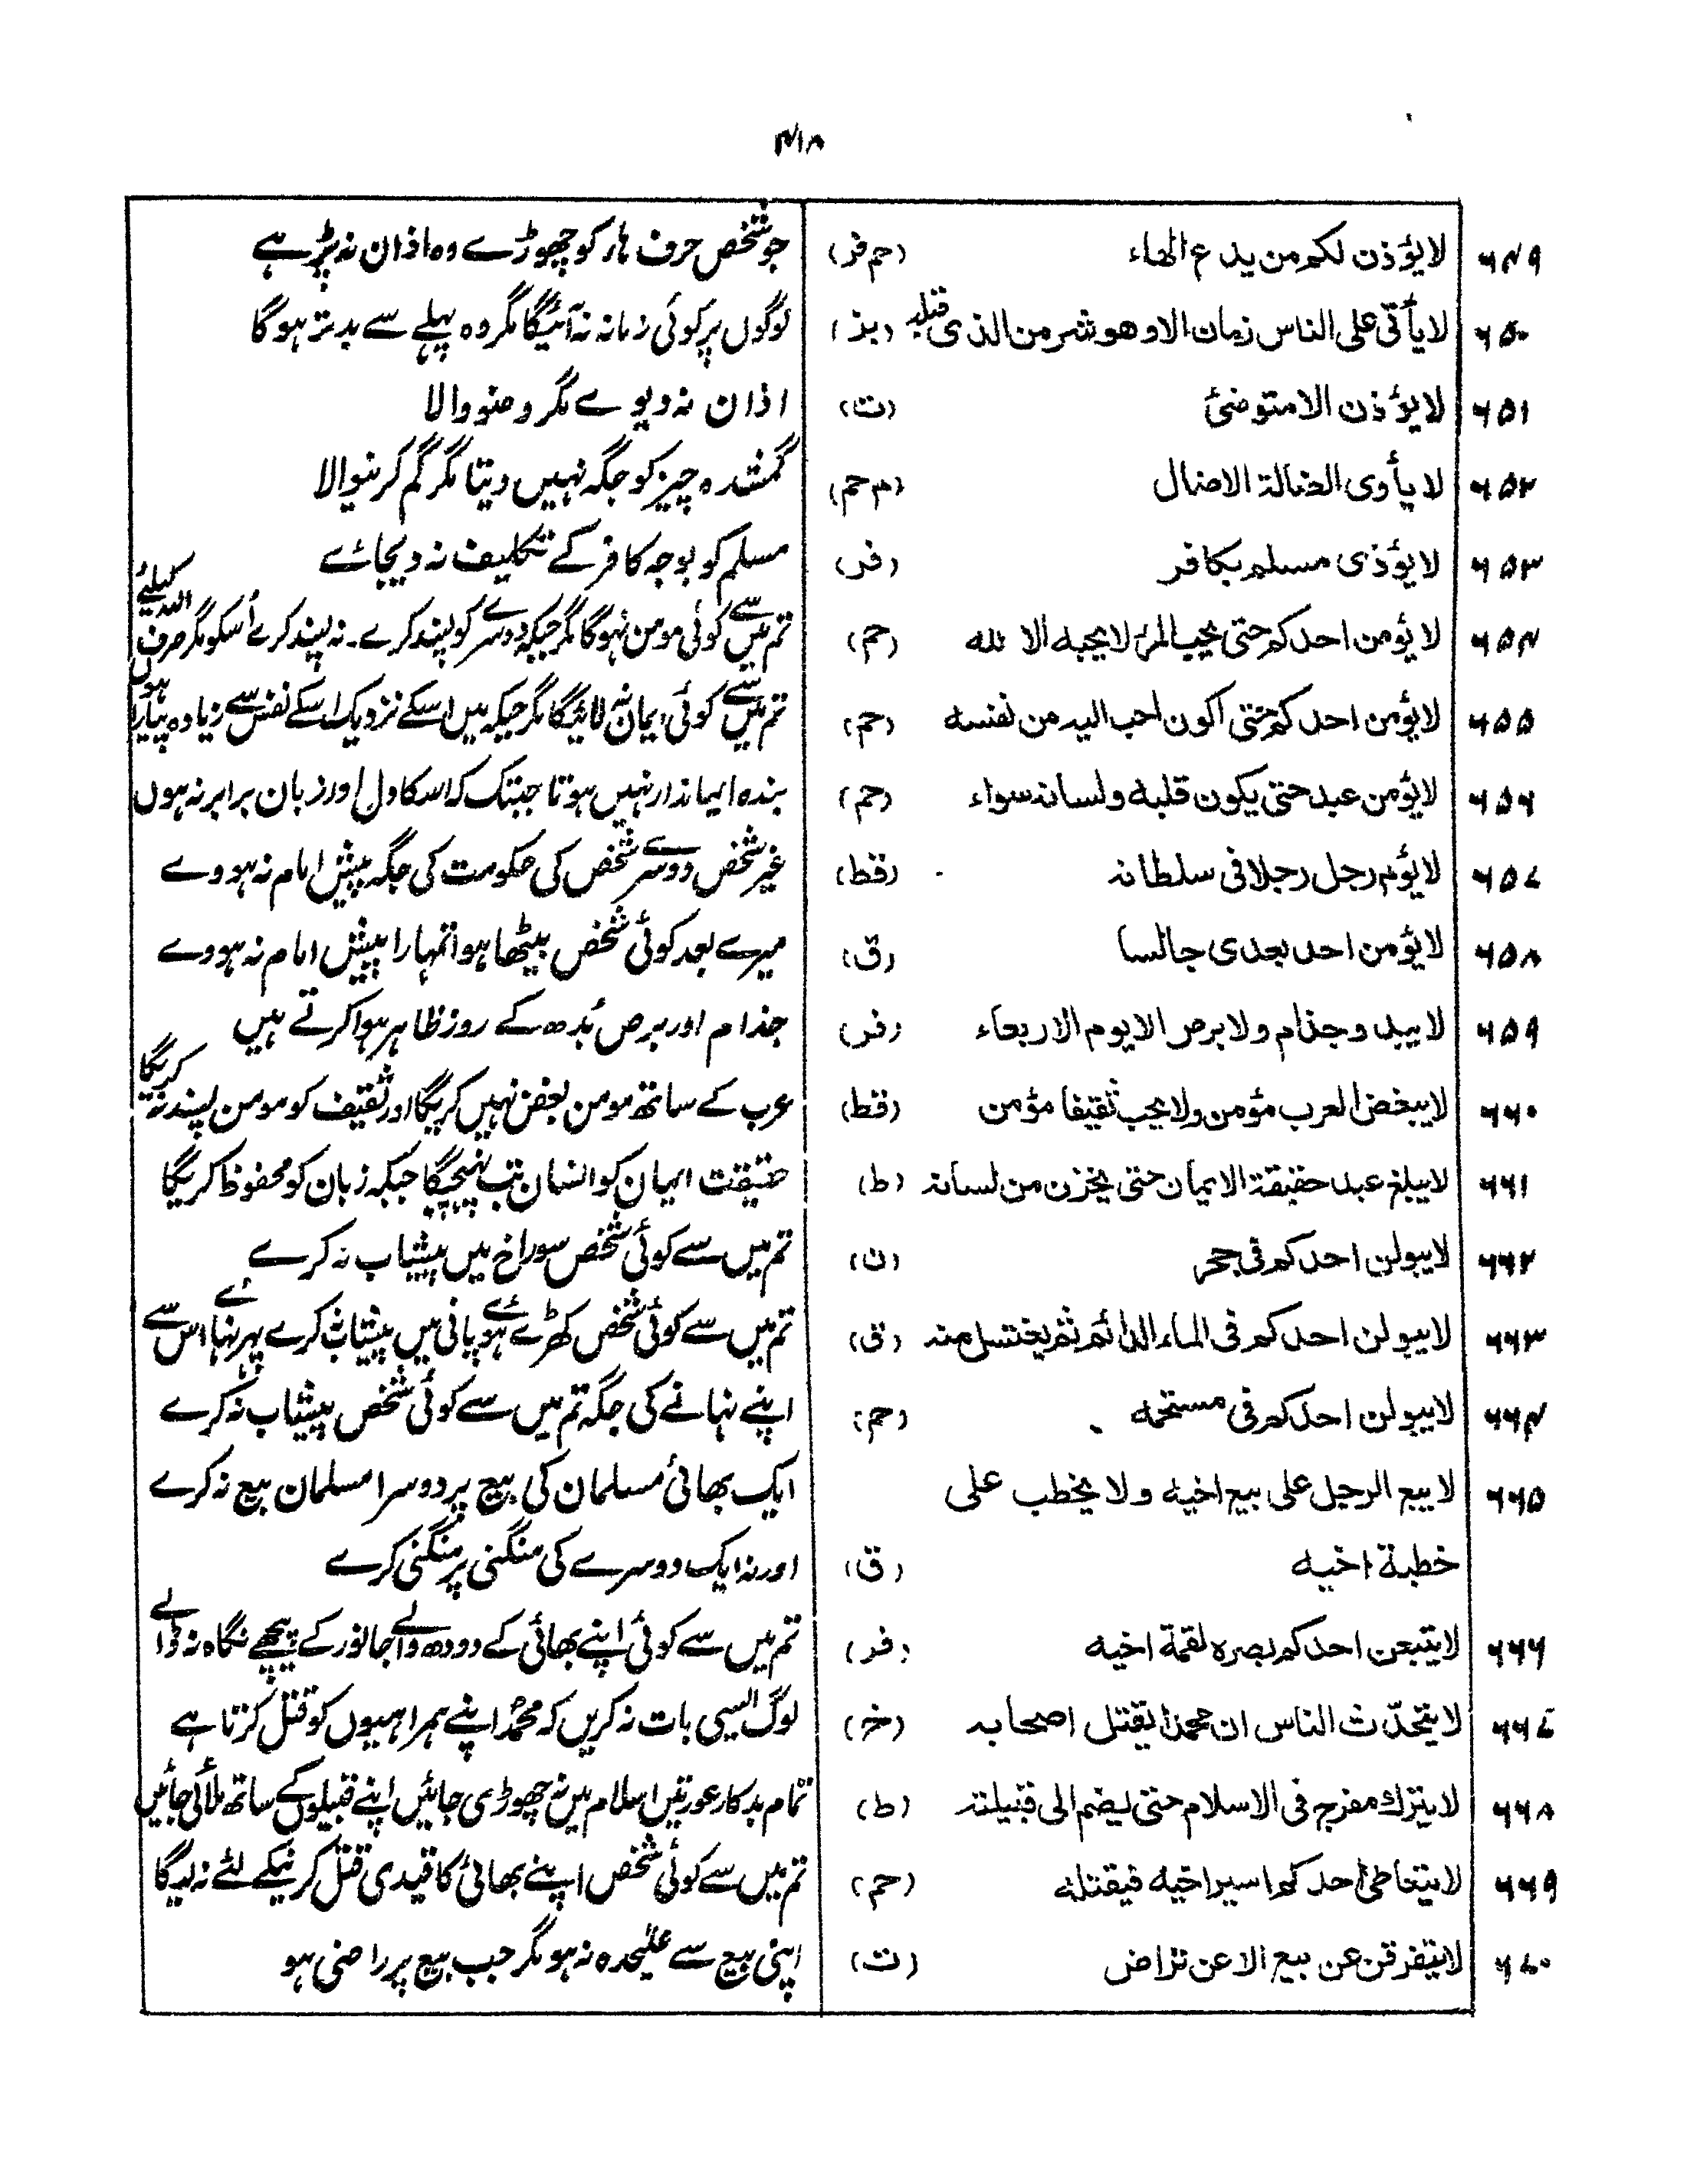 ۴۱۸
۶۴۹ لا يؤذن لكم من يدع الهاء (حم فر) جو شخص حرف ہار کو چھوڑے وہ اذان نہ پڑہے
۶۵۰ لا يأتى على الناس زمان الا وهو شر من الذى قبله (بز) لوگوں پر کوئی زمانہ نہ آئیگا مگر وہ پہلے سے بدتر ہوگا
۶۵۱ لا يؤذن الا متوضئ (ت) اذان نہ دیوے مگر وضو والا
۶۵۲ لا يأوى الضالة الا ضال (م حم) گمشدہ چیز کو جگہ نہیں دیتا مگر گم کرنیوالا
۶۵۳ لا يؤذى مسلم بكافر (فر) مسلم کو بوجہ کافر کے تکلیف نہ دیجائے
۶۵۴ لا يؤمن احدكم حتى يحب المرء لا يحبه الا لله (حم) تم میں سے کوئی مومن نہوگا مگر جبکہ دوسرے کو پسند کرے۔ نہ پسند کرے اُسکو مگر صرف اللہ کیلئے
۶۵۵ لا يؤمن احدكم حتى اكون احب اليه من نفسه (حم) تم میں سے کوئی ایمان نہ لائیگا مگر جبکہ میں اسکے نزدیک اسکے نفس سے زیادہ پیارا ہوں
۶۵۶ لا يؤمن عبد حتى يكون قلبه ولسانه سواء (حم) بندہ ایماندار نہیں ہوتا جبتک کہ اسکا دل اور زبان برابر نہ ہوں
۶۵۷ لا يؤم رجل رجلا فى سلطانه (قط) غیر شخص دوسرے شخص کی حکومت کی جگہ پیش امام نہ ہووے
۶۵۸ لا يؤمن احد بعدى جالسا (ق) میرے بعد کوئی شخص بیٹھا ہوا تمہارا پیش امام نہ ہووے
۶۵۹ لا يبد وجذام ولا برص الا يوم الاربعاء (فر) جذام اور برص بُدھ کے روز ظاہر ہوا کرتے ہیں
۶۶۰ لا يبغض العرب مؤمن ولا يحب ثقيفا مؤمن (قط) عرب کے ساتھ مومن بغض نہیں کریگا اور ثقیف کو مومن پسند نہ کریگا
۶۶۱ لا يبلغ عبد حقيقة الايمان حتى يخزن من لسانه (ط) حقیقت ایمان کو انسان تب پہنچیگا جبکہ زبان کو محفوظ کریگا
۶۶۲ لا يبولن احدكم فى جحر (ن) تم میں سے کوئی شخص سوراخ میں پیشاب نہ کرے
۶۶۳ لا يبولن احدكم فى الماء الدائم ثم يغتسل منه (ق) تم میں سے کوئی شخص کھڑے ہوئے پانی میں پیشاب نہ کرے پہر نہائے اس سے
۶۶۴ لا يبولن احدكم فى مستحمه (حم) اپنے نہانے کی جگہ تم میں سے کوئی شخص پیشاب نہ کرے
۶۶۵ لا يبع الرجل على بيع اخيه ولا يخطب على ایک بھائی مسلمان کی بیع پر دوسرا مسلمان بیع نہ کرے
خطبة اخيه (ق) اور نہ ایک دوسرے کی منگنی پر منگنی کرے
۶۶۶ لا يتبعن احدكم بصره لقمة اخيه (فر) تم میں سے کوئی اپنے بھائی کے دودھ والے جانور کے پیچھے نگاہ نہ ڈالے
۶۶۷ لا يتحدّث الناس ان محمدا يقتل اصحابه (خ) لوگ ایسی بات نہ کریں کہ محمدؐ اپنے ہمراہیوں کو قتل کرتا ہے
۶۶۸ لا يترك مفرج فى الاسلام حتى يضم الى قبيلته (ط) تمام بدکار عورتیں اسلام میں نہ چھوڑی جائیں اپنے قبیلوں کے ساتھ ملائی جائیں
۶۶۹ لا يتعاطى احدكم اسير اخيه فيقتله (حم) تم میں سے کوئی شخص اپنے بھائی کا قیدی قتل کرنیکے لئے نہ لیگا
۶۷۰ لا يتفرقن عن بيع الا عن تراض (ت) اپنی بیع سے علیحدہ نہ ہو مگر جب بیع پر راضی ہو